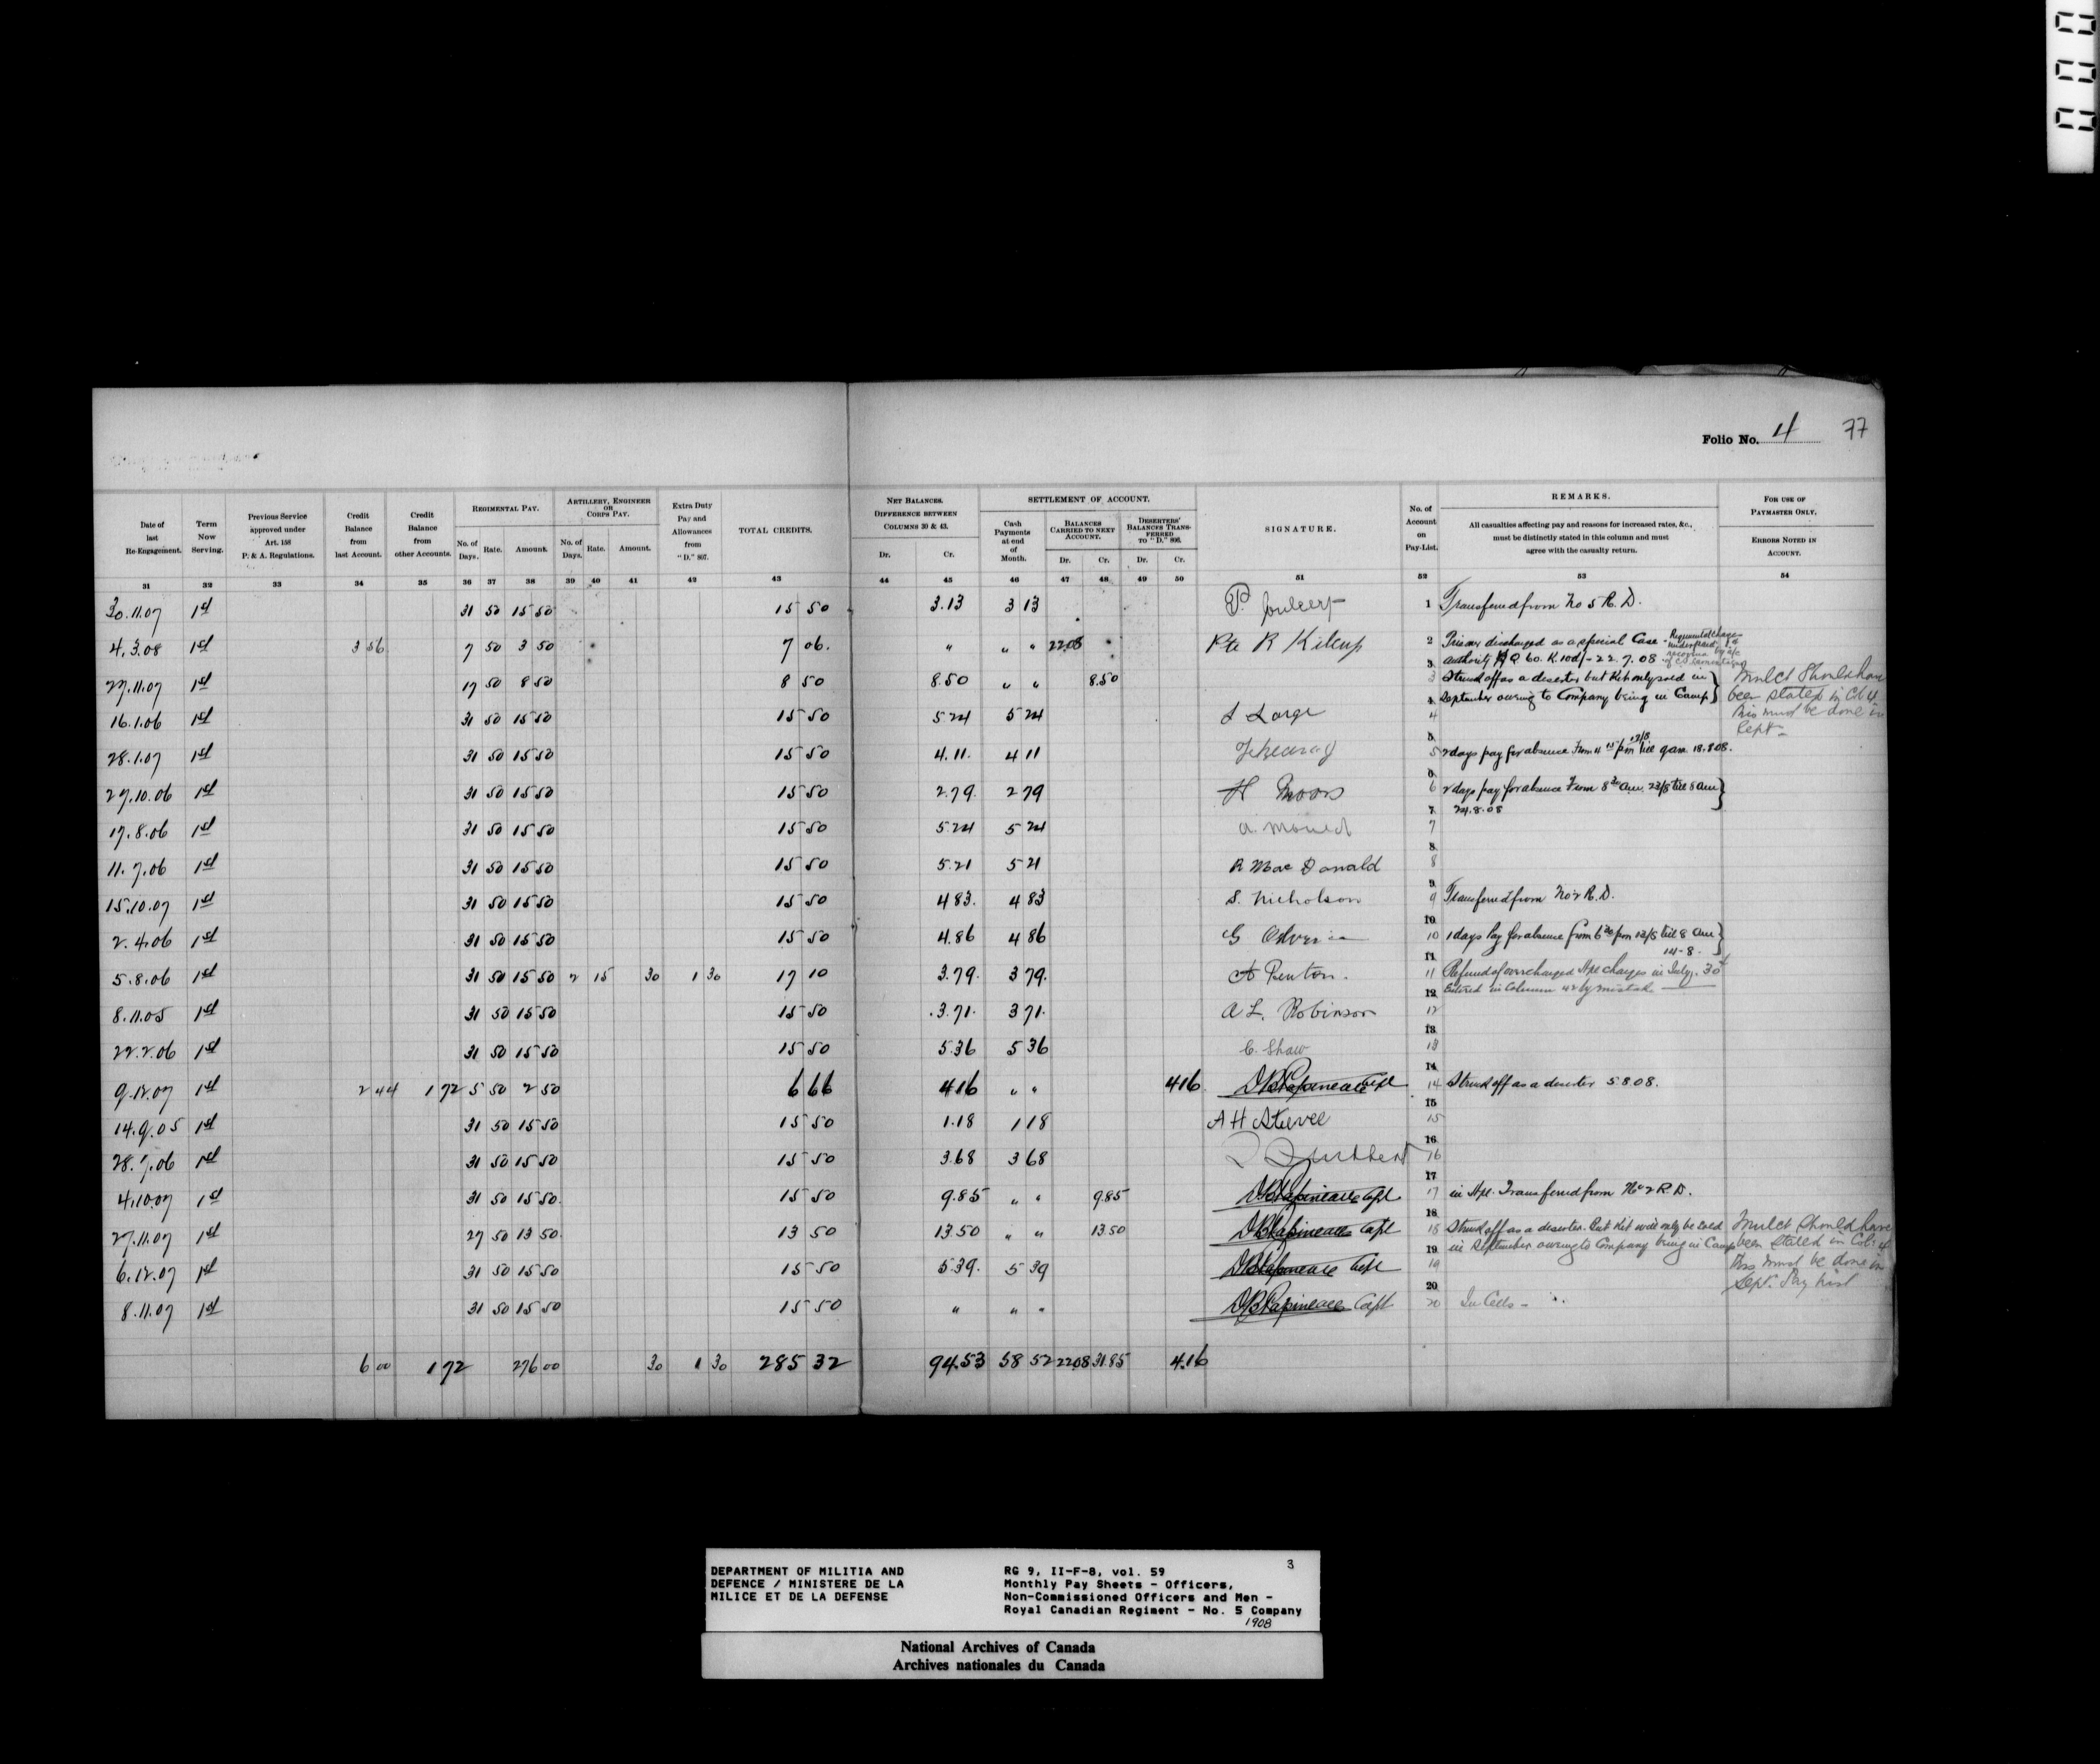 Folio No. 4 77
Date of last Re-Engagement.
Term Now Serving.
Previous Service approved under Art. 158 P. & A. Regulations.
Credit Balance from last Account.
Credit Balance from other Accounts.
REGIMENTAL PAY.
No. of Days. Rate. Amount.
ARTILLERY, ENGINEER OR CORPS PAY.
No. of Days. Rate. Amount.
Extra Duty Pay and Allowances from "D." 807.
TOTAL CREDITS.
NET BALANCES. DIFFERENCE BETWEEN COLUMNS 30 & 43.
Dr. Cr.
SETTLEMENT OF ACCOUNT.
Cash Payments at end of Month.
BALANCES CARRIED TO NEXT ACCOUNT.
Dr. Cr.
DESERTERS' BALANCES TRANSFERRED TO "D." 806.
Dr. Cr.
SIGNATURE.
No. of Account on Pay-List.
REMARKS.
All casualties affecting pay and reasons for increased rates, &c., must be distinctly stated in this column and must agree with the casualty return.
FOR USE OF PAYMASTER ONLY.
ERRORS NOTED IN ACCOUNT.
31 32 33 34 35 36 37 38 39 40 41 42 43 44 45 46 47 48 49 50 51 52 53 54
30.11.07 1st 31 50 15 50 15 50 3.13 3 13 1 Transferred from No 5 R. D.
4.3.08 1st 3 56 7 50 3 50 7 06. " " " 22.08 Pte R Kilcup 2 Prisoner discharged as a special Case -
authority HQ 60. K. 100/- 22.7.08
27.11.07 1st 17 50 8 50 8 50 8.50 " " 8.50 3 Struck off as a deserter but Kit only sold in
September owing to Company being in Camp
Mulct Should have
been stated in Col 4
This must be done in
Sept
16.1.06 1st 31 50 15 50 15 50 5 24 5 24 L Large 4
28.1.07 1st 31 50 15 50 15 50 4.11. 4 11 5 2 days pay for absence From 4 15 pm 17/8 till 9 am 18.8.08.
27.10.06 1st 31 50 15 50 15 50 2.79. 2 79 H Moors 6 2 days pay for absence From 8 30 am 23/8 till 8 am
24.8.08
17.8.06 1st 31 50 15 50 15 50 5.24 5 24 7
11.7.06 1st 31 50 15 50 15 50 5.21 5 21 R Mac Donald 8
15.10.07 1st 31 50 15 50 15 50 4 83. 4 83 S. Nicholson 9 Transferred from No 2 R. D.
2.4.06 1st 31 50 15 50 15 50 4.86 4 86 10 1 days Pay for absence from 6 30 pm 13/8 till 8 am
14-8.
5.8.06 1st 31 50 15 50 2 15 30 1 30 17 10 3.79. 3 79. A Penton. 11 Refund of overcharged Hpl charges in July. 30¢
Entered in Column 42 by mistake
8.11.05 1st 31 50 15 50 15 50 3.71. 3 71. A L. Robinson 12
22.2.06 1st 31 50 15 50 15 50 5.36 5 36 C. Shaw 13
9.12.07 1st 2 44 1 72 5 50 2 50 6 66 4.16 " " 4.16 DB Papineau Capt 14 Struck off as a deserter 5.8.08.
14.9.05 1st 31 50 15 50 15 50 1.18 1 18 A H Steevee 15
28.7.06 1st 31 50 15 50 15 50 3.68 3 68 16
4.10.07 1st 31 50 15 50. 15 50 9.85 " " 9.85 DB Papineau Capt 17 in Hpl. Transferred from No 2 R. D.
27.11.07 1st 27 50 13 50. 13 50 13.50 " " 13.50 DB Papineau Capt 18 Struck off as a deserter. But Kit will only be sold
in September owing to Company being in Camp
Mulct Should have
been Stated in Col: 4
This must be done in
Sept. Pay list
6.12.07 1st 31 50 15 50 15 50 5.39. 5 39 DB Papineau Capt 19
8.11.07 1st 31 50 15 50 15 50 " " " DB Papineau Capt 20 In Cells -
6 00 1 72 276 00 30 1 30 285 32 94.53 58 52 22.08 31.85 4.16
DEPARTMENT OF MILITIA AND
DEFENCE / MINISTERE DE LA
MILICE ET DE LA DEFENSE
RG 9, II-F-8, vol. 59 3
Monthly Pay Sheets - Officers,
Non-Commissioned Officers and Men -
Royal Canadian Regiment - No. 5 Company
1908
National Archives of Canada
Archives nationales du Canada